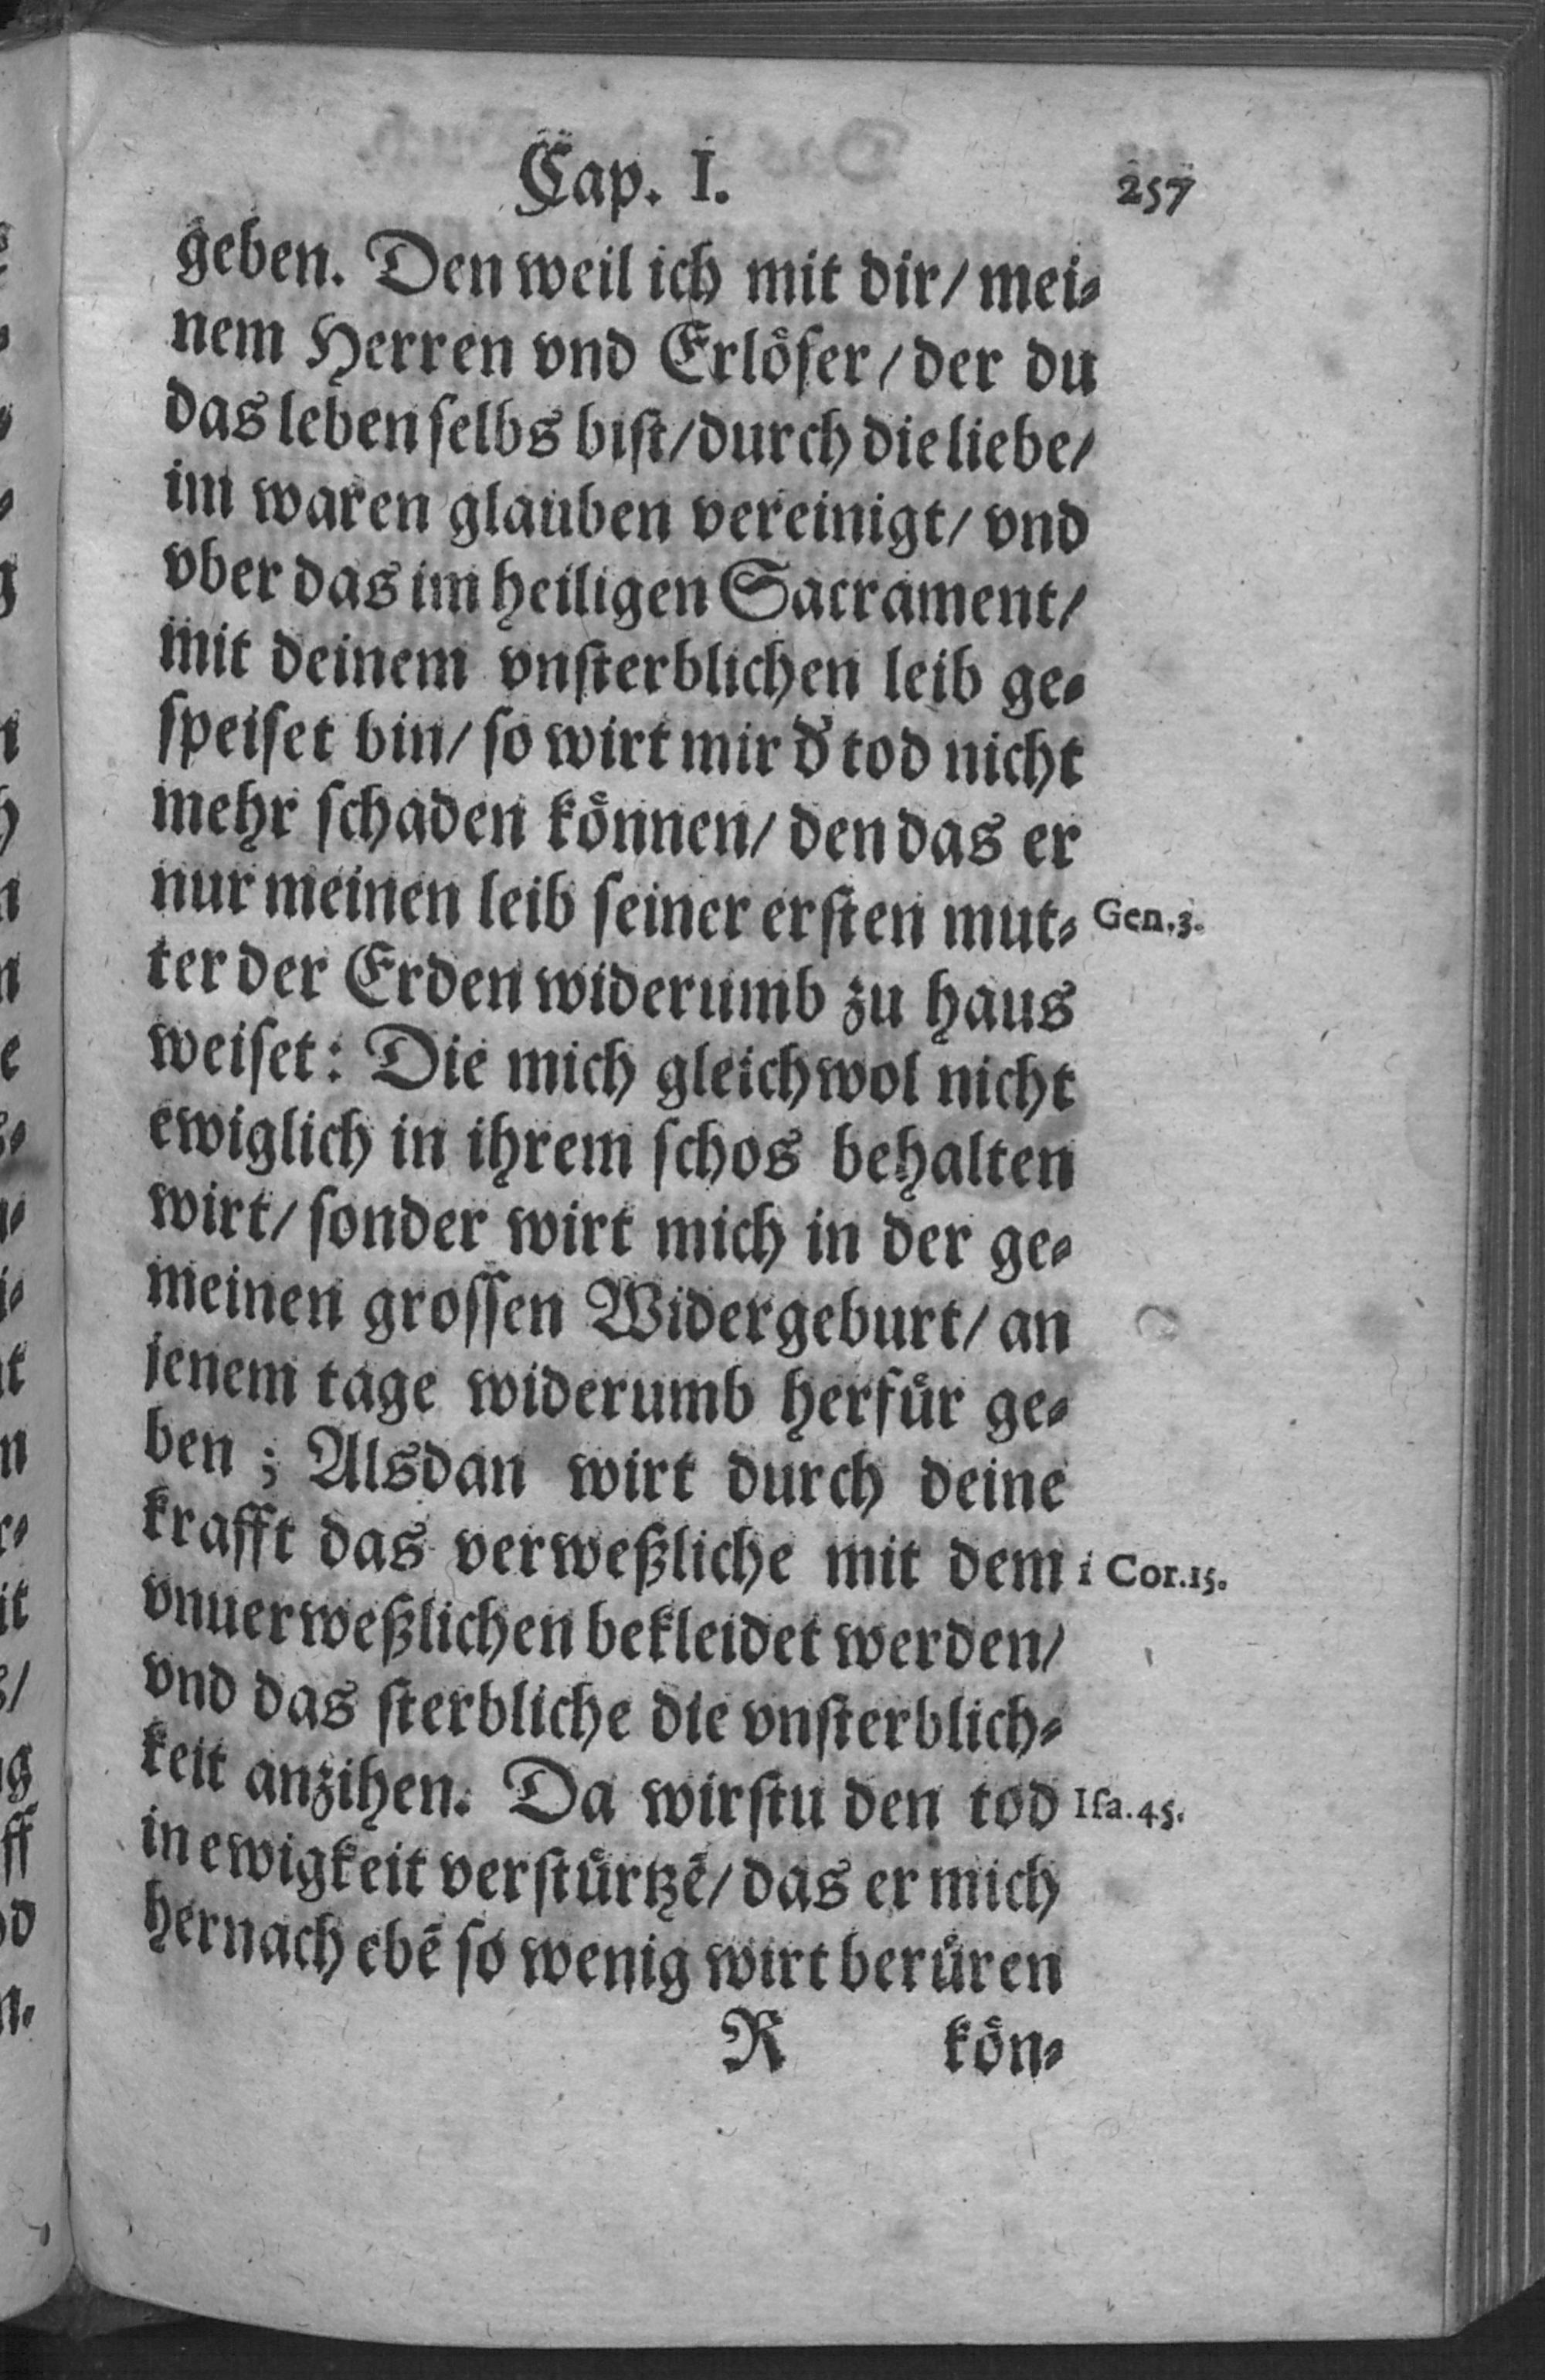 Cap. I. 257
geben. Den weil ich mit dir/ mei⸗
nem Herren vnd Erlöſer/ der du
das leben ſelbs biſt/ durch die liebe/
im waren glauben vereinigt/ vnd
vber das im heiligen Sacrament/
mit deinem vnſterblichen leib ge⸗
ſpeiſet bin/ ſo wirt mir d' tod nicht
mehr ſchaden können/ den das er
nur meinen leib ſeiner erſten mut⸗ Gen.3.
ter der Erden widerumb zu haus
weiſet: Die mich gleichwol nicht
ewiglich in ihrem ſchos behalten
wirt/ ſonder wirt mich in der ge⸗
meinen groſſen Widergeburt/ an
jenem tage widerumb herfür ge⸗
ben; Alsdan wirt durch deine
krafft das verweßliche mit dem 1 Cor.15.
vnuerweßlichen bekleidet werden/
vnd das ſterbliche die vnſterblich⸗
keit anzihen. Da wirſtu den tod Iſa.45.
in ewigkeit verſtürtzē/ das er mich
hernach ebē ſo wenig wirt berüren
R kön⸗